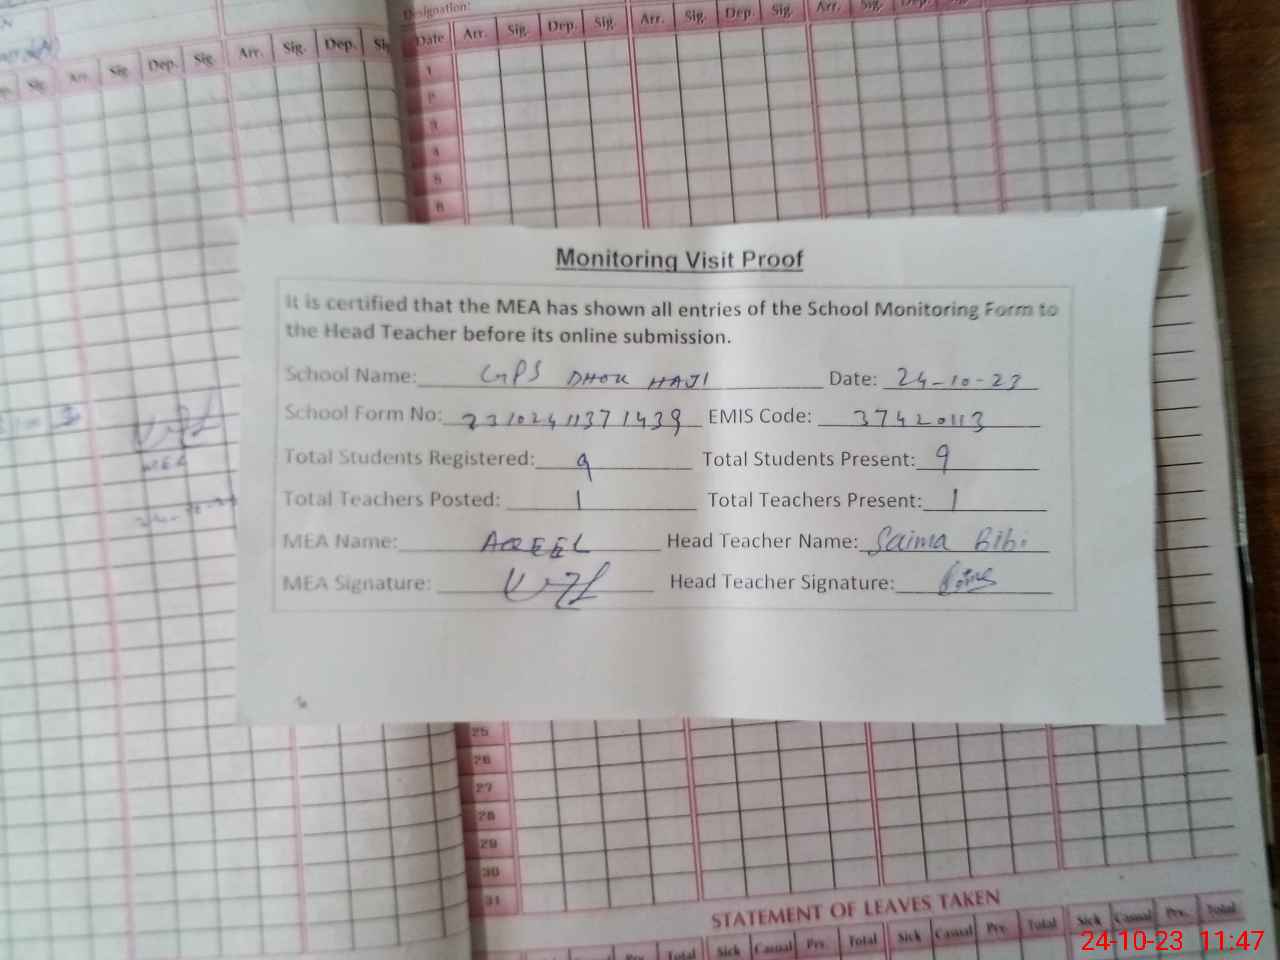 Designation:
Arr. Sig. Dep. Sig. Arr. Sig. Dep. Sig.
Date Arr. Sig. Dep. Sig. Arr. Sig. Dep. Sig. Arr. Sig. Dep.
1
2
3
4
5
6
Monitoring Visit Proof
It is certified that the MEA has shown all entries of the School Monitoring Form to
the Head Teacher before its online submission.
School Name: GPS DHOK HAJI Date: 24-10-23
School Form No: 23102411371439 EMIS Code: 37420113
Total Students Registered: 9 Total Students Present: 9
Total Teachers Posted: 1 Total Teachers Present: 1
MEA Name: AQEEL Head Teacher Name: Saima Bibi
MEA Signature: Head Teacher Signature:
MEA
25
26
27
28
29
30
31
STATEMENT OF LEAVES TAKEN
Total Sick Casual Prv. Total Sick Casual Prv. Total Sick Casual Prv. Total
24-10-23 11:47